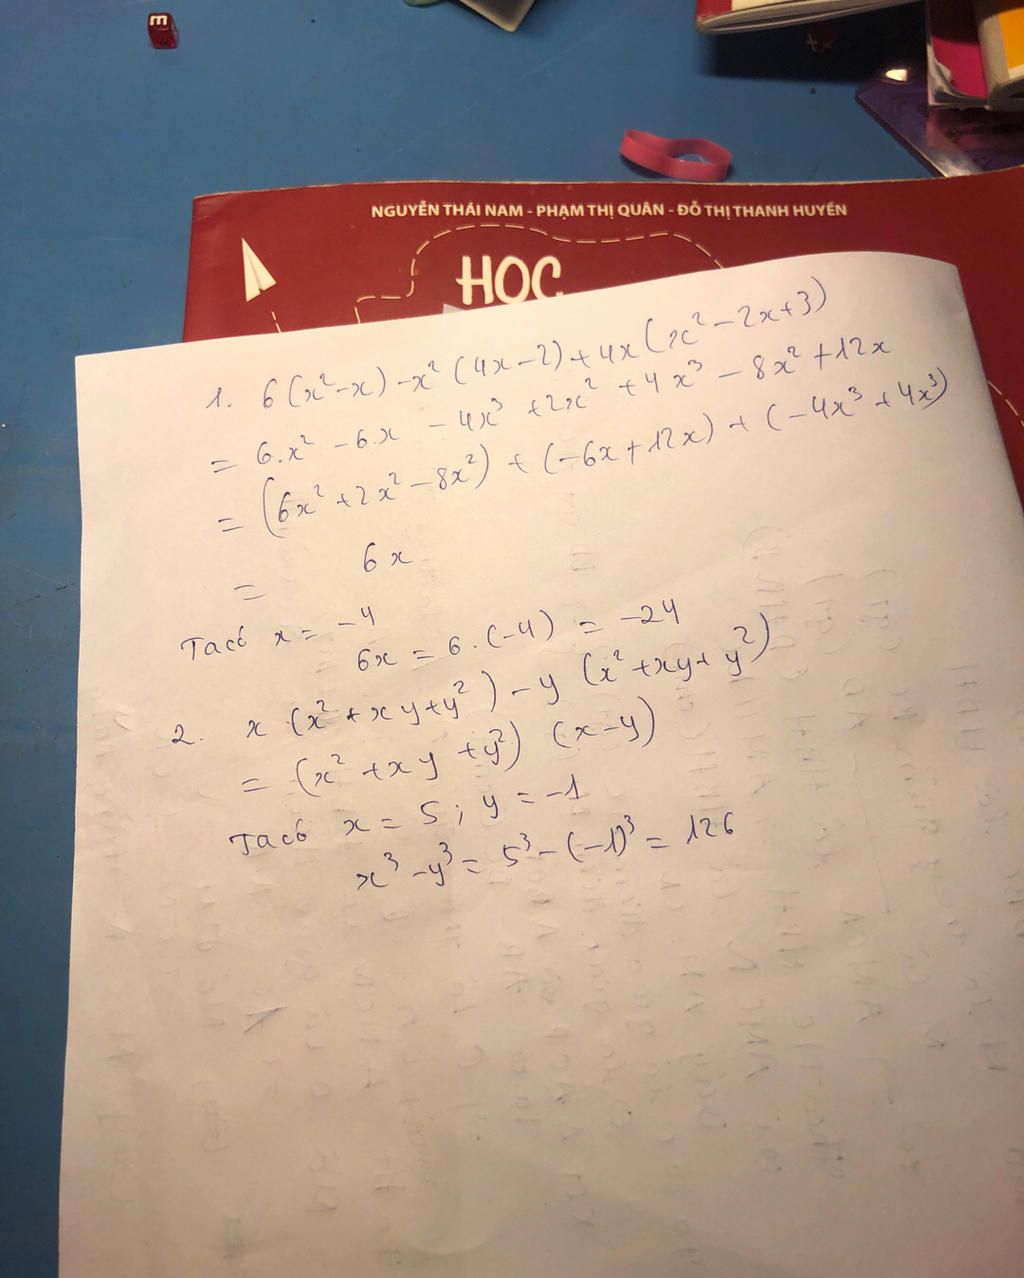 m
NGUYỄN THÁI NAM - PHẠM THỊ QUÂN - ĐỖ THỊ THANH HUYỀN
HỌC
1. 6(x² - x) - x²(4x - 2) + 4x(x² - 2x + 3)
= 6.x² - 6.x - 4x³ + 2x² + 4x³ - 8x² + 12x
= (6x² + 2x² - 8x²) + (-6x + 12x) + (-4x³ + 4x³)
= 6x
Ta có x = -4
6x = 6.(-4) = -24
2. x(x² + xy + y²) - y(x² + xy + y²)
= (x² + xy + y²)(x - y)
Ta có x = 5; y = -1
x³ - y³ = 5³ - (-1)³ = 126